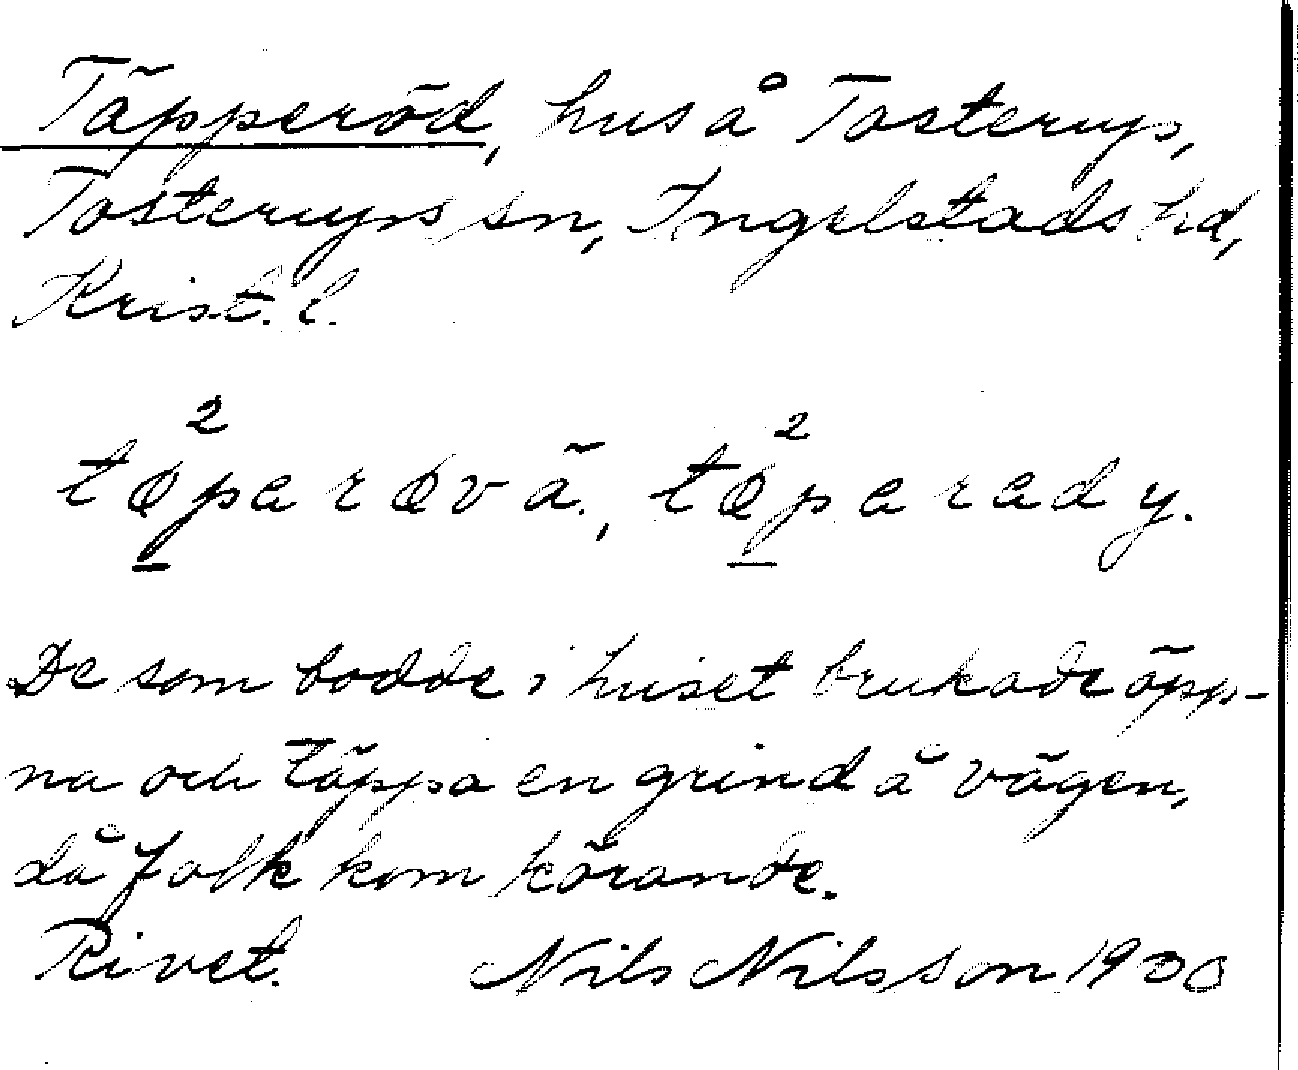 Täpperöd, hus å Tosterup,
Tosterups sn, Ingelstads hd,
Krist. l.
De som bodde i huset brukade öpp-
na och täppa en grind å vägen,
då folk kom körande.
Rivet. Nils Nilsson 1930